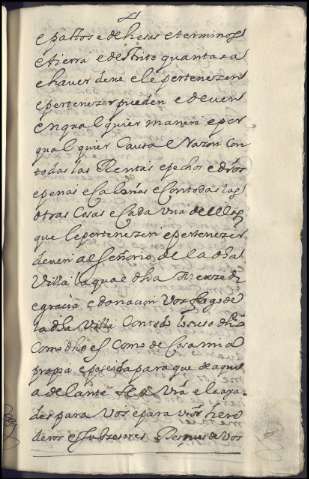 e pastos e dehesas e terminos
e tierra e destrito quantas a
e haver deve e le pertenezen
e pertenezer pueden e deven
en qual quier manera e por
qual quier Causa e Razon con
todas las Rentas e pechos e dros
e penas e Calonas e con todas las
otras Cosas e Cada Una de ellas
que le pertenezen e pertenezer
deven al Señorio de la dha
Villa la qual dha Merzed
e gracia e donacion Vos fago de
la dha Villa Con todo lo suso dho
Como dho es Como de Cosa mia
propia e poseida para que de aqui
adelante sea Vra e leada
des para Vos e para Vros here
deros e subzesores despues de Vos